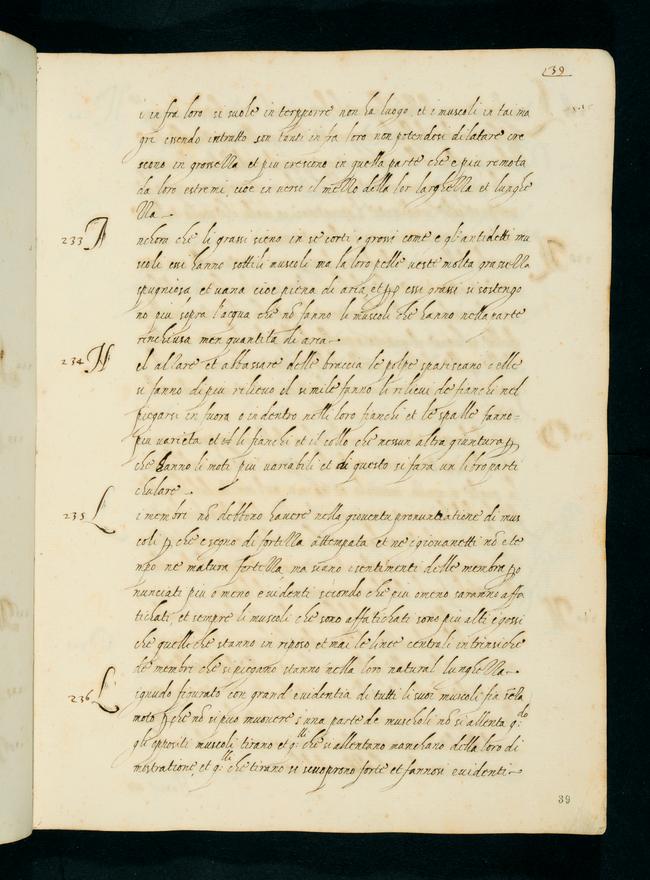 39
i infra loro si suole interpporre non ha luogo, et i muscoli in tai ma
gri essendo intrutto son tanti infra loro non potendosi dilatare cre
scono in grossezza et piu crescono in quella parte che e piu remota
da loro estremi, cioe in verso il mezzo della lor larghezza et lunghe
zza
233 Anchora che li grassi sieno in se corti e grossi come e gl'antidetti mu
scoli essi hanno sottili muscoli ma la loro pelle veste molta grassezza
spugniosa et vana cioe piena di aria, et p esse grassi si sostengo
no piu sopra l'acqua che nō fanno li muscoli che hanno nella parte
rinchiusa men quantita di aria
234 Nel alzare et abbassare delle braccia le polpe spariscano e elle
si fanno di piu rilievo el simile fanno li rilievi de fianchi nel
piegarsi in fuora o in dentro nelli loro fianchi et le spalle fanno=
piu varieta et li fianchi et il collo che nessun altra giuntura p
che hanno li moti piu variabili et di questo si fara un libro parti
chulare
235 Li membri nō debbono havere nella gioventu pronuntiatione di mus
coli p che e segno di fortezza attempata et ne i giovanetti nō e te
mpo ne matura fortezza, ma siano i sentimenti delle membra pro
nunciati piu o meno evidenti secondo che piu o meno saranno affa
tichati, et sempre li muscoli che sono affatichati sono piu alti e grossi
che quelli che stanno in riposo et mai le linee centrali intrinsiche
de membri che si piegano stanno nella loro natural lunghezza
236 Lignudo figurato con grand evidentia di tutti li suoi muscoli fia senza
moto p che nō si puo muovere s'una parte de muscholi nō si allenta q:do
gli oppositi muscoli tirano et q:lli che si allentano manchano della loro di
mostratione, et q:lli che tirano si scuoprono forte et fannosi evidenti
39